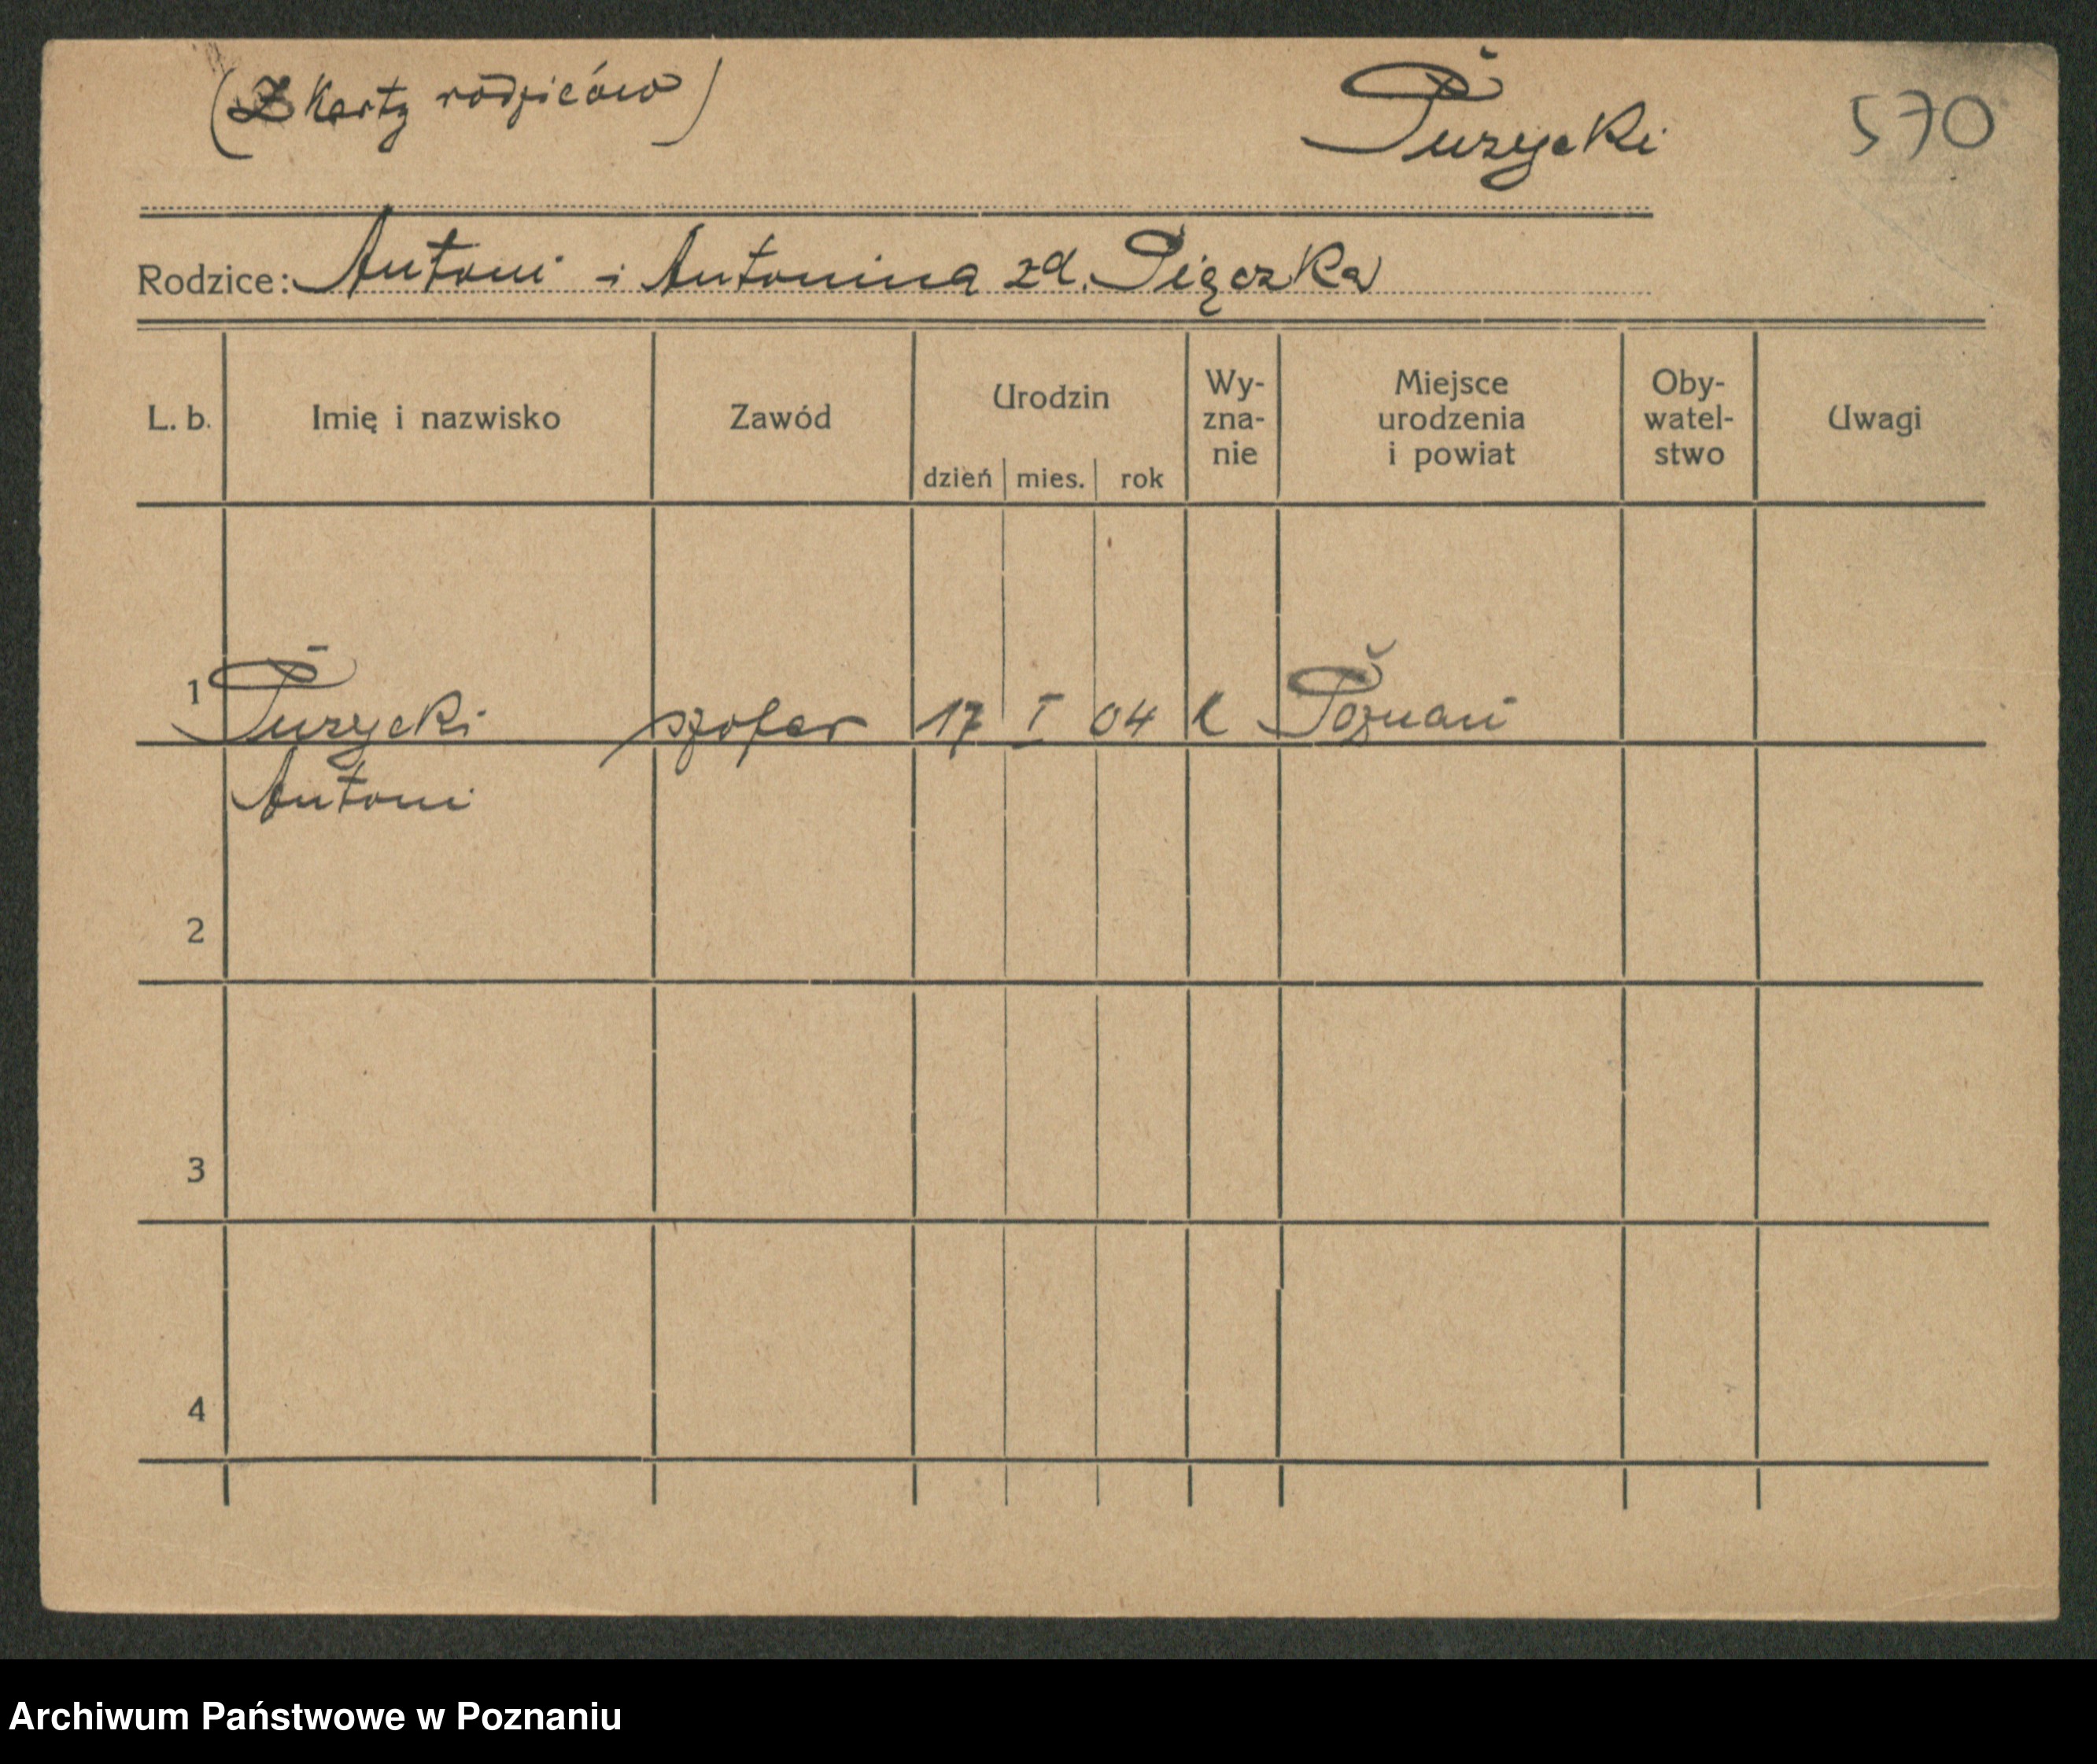 (Z karty rodziców)
Pużycki
570
Rodzice: Antoni i Antonina zd. Pięczka
L. b. Imię i nazwisko Zawód Urodzin dzień mies. rok Wy-zna-nie Miejsce urodzenia i powiat Oby-watel-stwo Uwagi
1 Pużycki szofer 17 I 04 k Poznań
Antoni
2
3
4
Archiwum Państwowe w Poznaniu